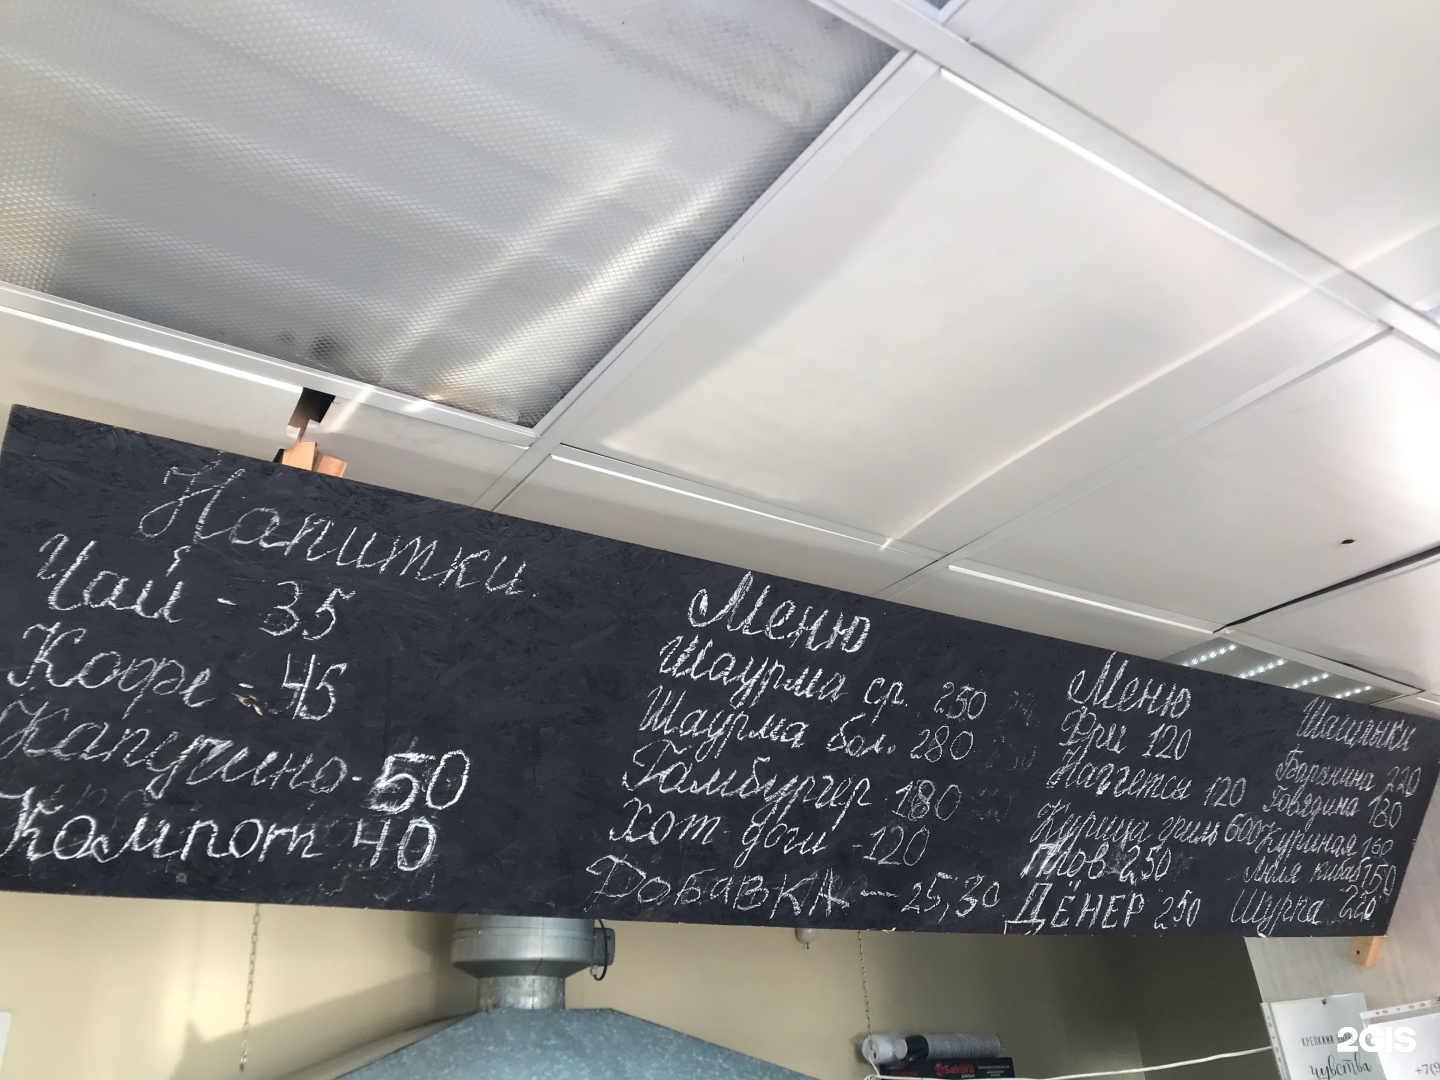 Напитки.
Чай - 35
Кофе - 45
Капучино - 50
Компот 40
Меню
Шаурма ср. 250
Шаурма бол. 280
Гамбургер 180
Хот доги - 120
Добавка — 25,30
Меню
Фри 120
Наггетсы 120
Курица гриль 600
Плов 250
ДЁНЕР 250
Шашлыки
Баранина 220
Говядина 180
Куриная 160
Люля кибаб 150
Шурпа 220
КРЕПКИЙ
чувства
Sakura
+7(9
2GIS